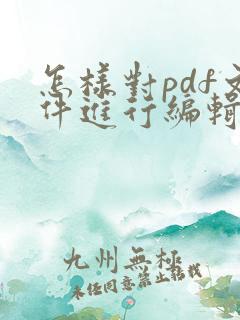 怎樣對pdf文
件進行編輯
九州無極
未經同意禁止轉載